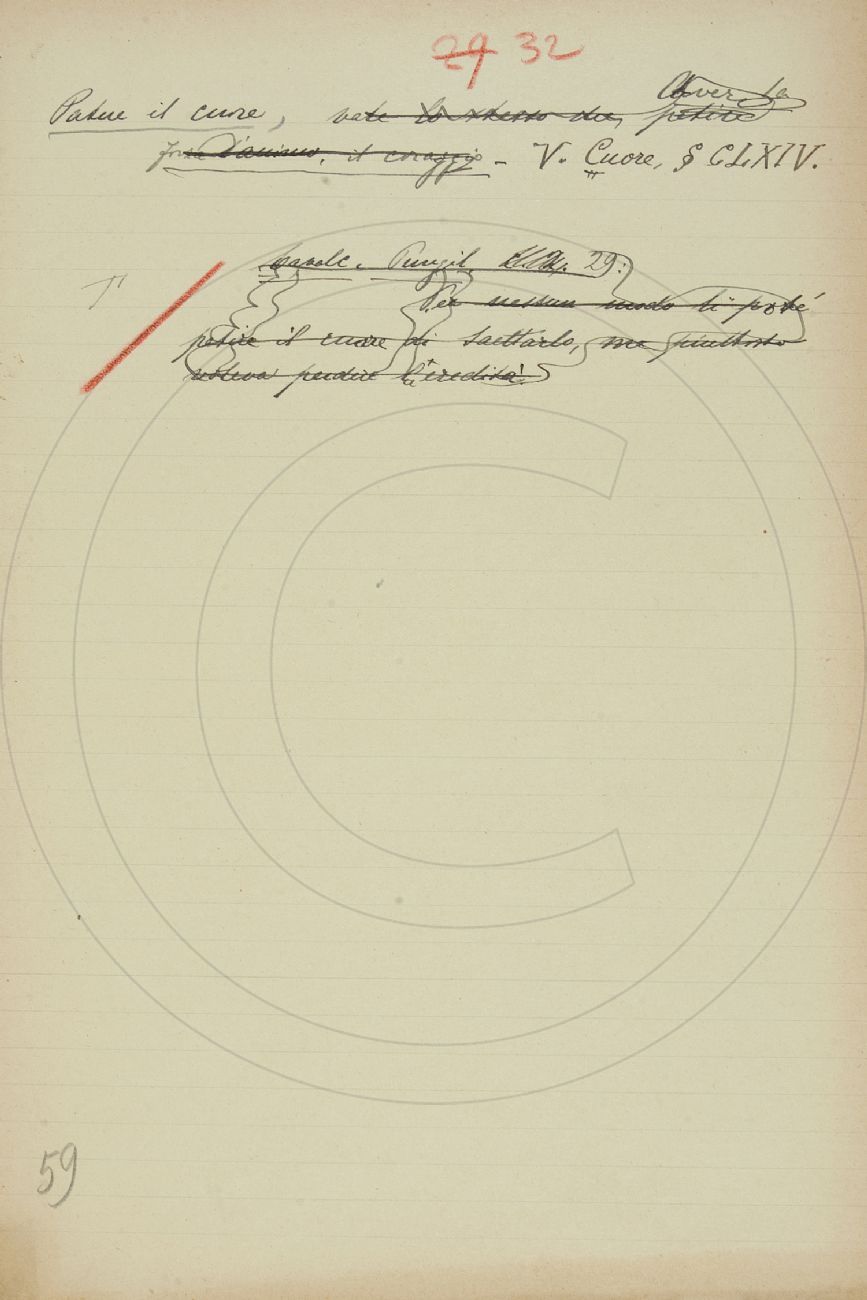 29 32
Patire il cuore, vale lo stesso che, patire Aver la
forza d'animo, il coraggio – V. Cuore, § CLXIV.
Cavalc. Pungil. 29:
Per nessun modo li poté
patire il cuore di saettarlo, ma piuttosto
voleva perdire l'eredità.
59